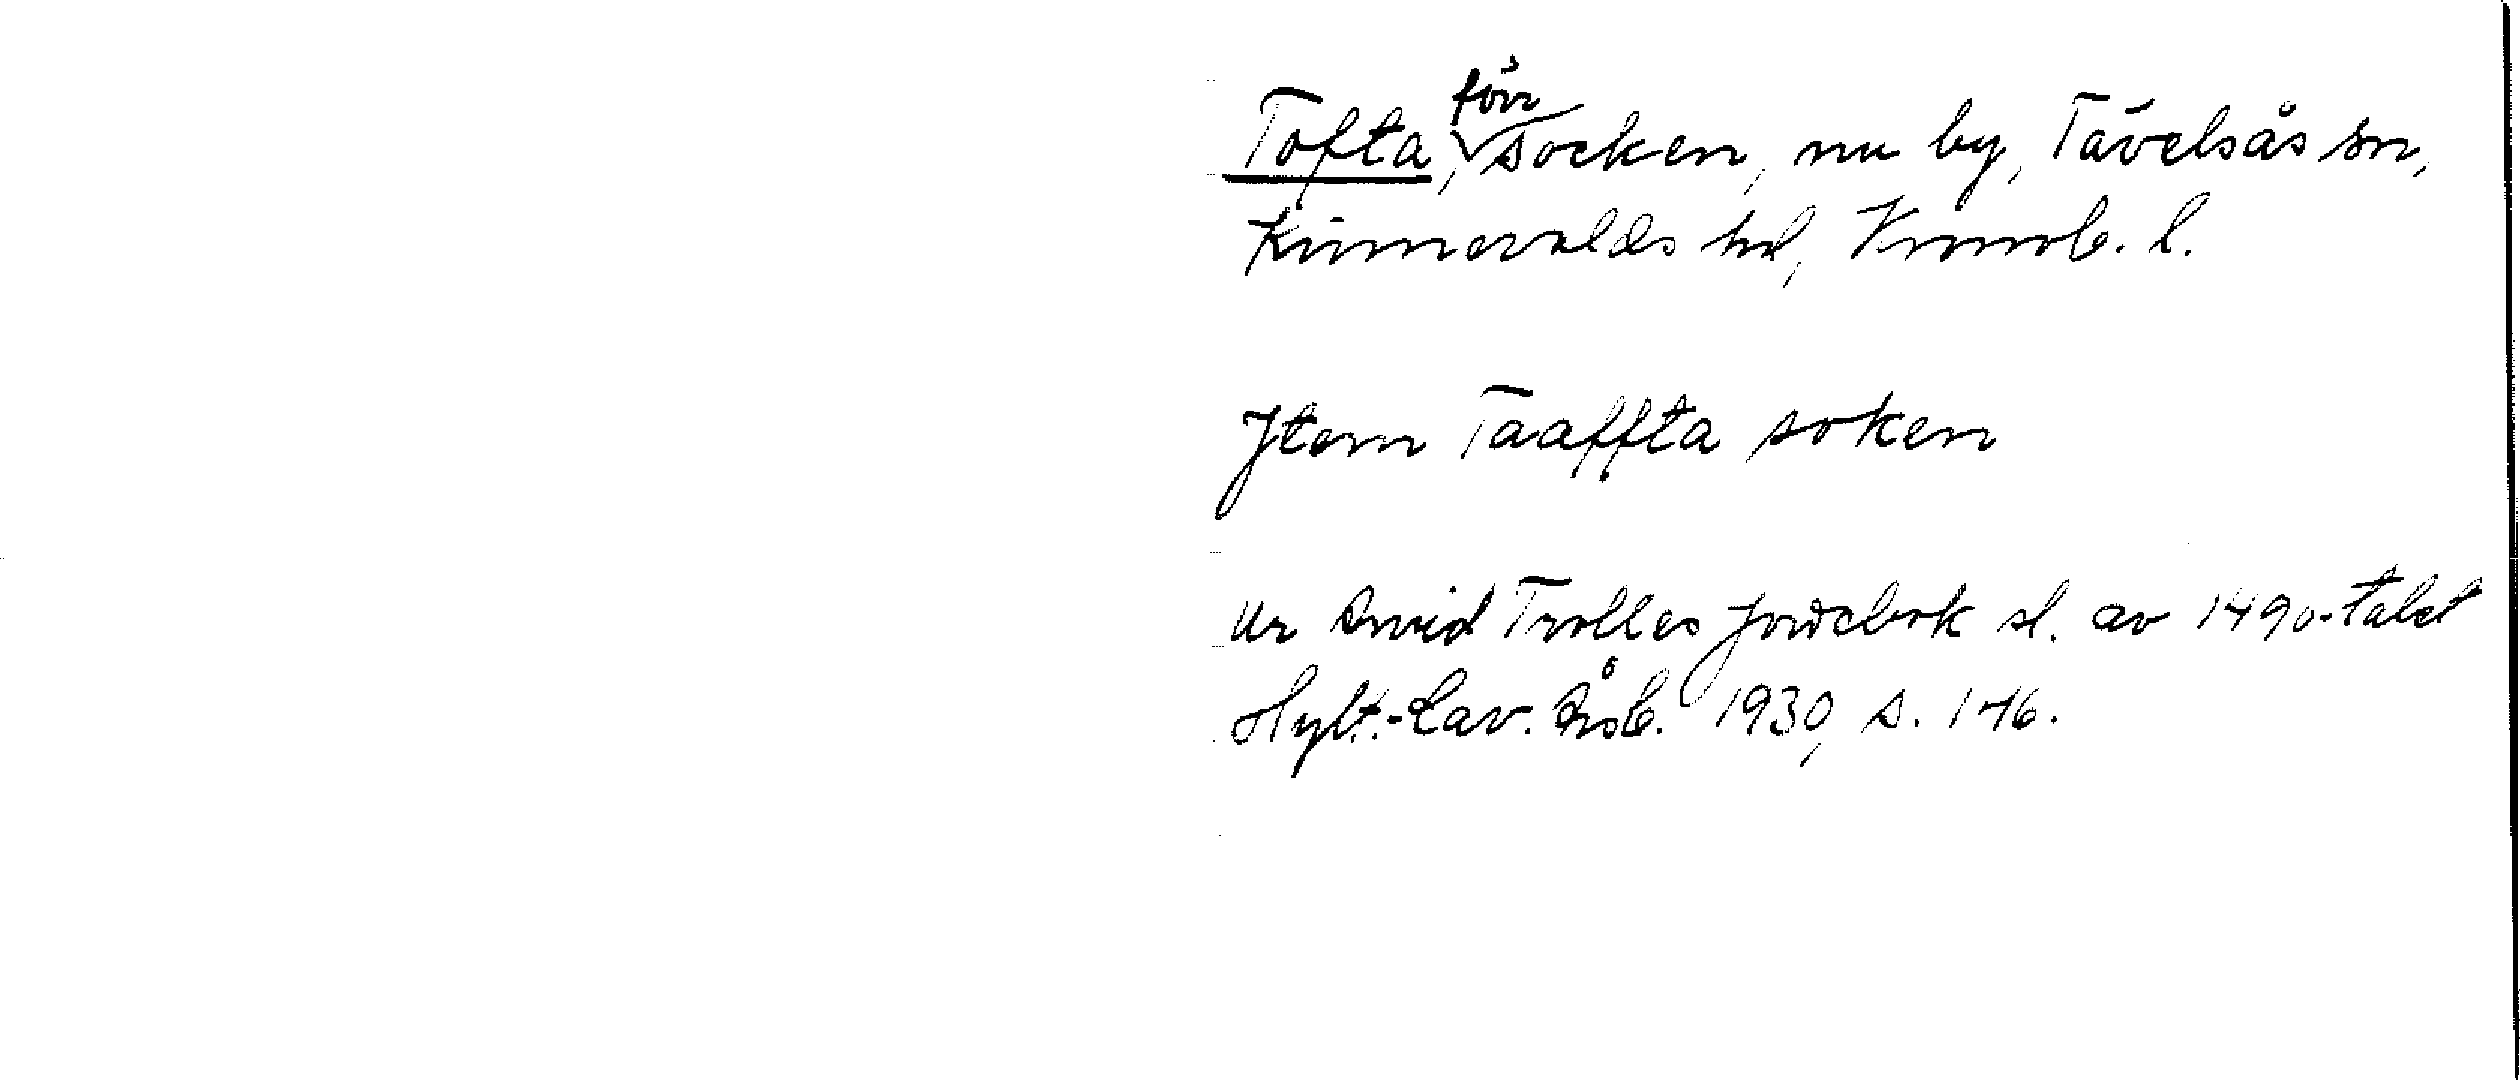 Tofta, förr socken, nu by, Tävelsås sn,
Kinnevalds hd, Kronob. l.
Jtem Taaffta soken
Ur Arvid Trolles jordebok sl. av 1490-talet
Hylt.-Cav. Årsb. 1930, s. 146.